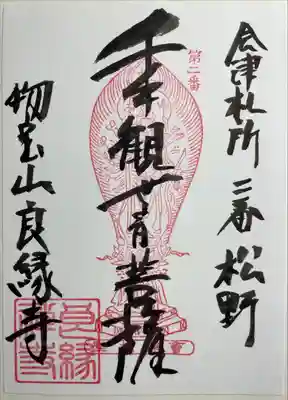 会津札所 二番 松野
第二番
千手観世音菩薩
物玉山良縁寺
良縁寺